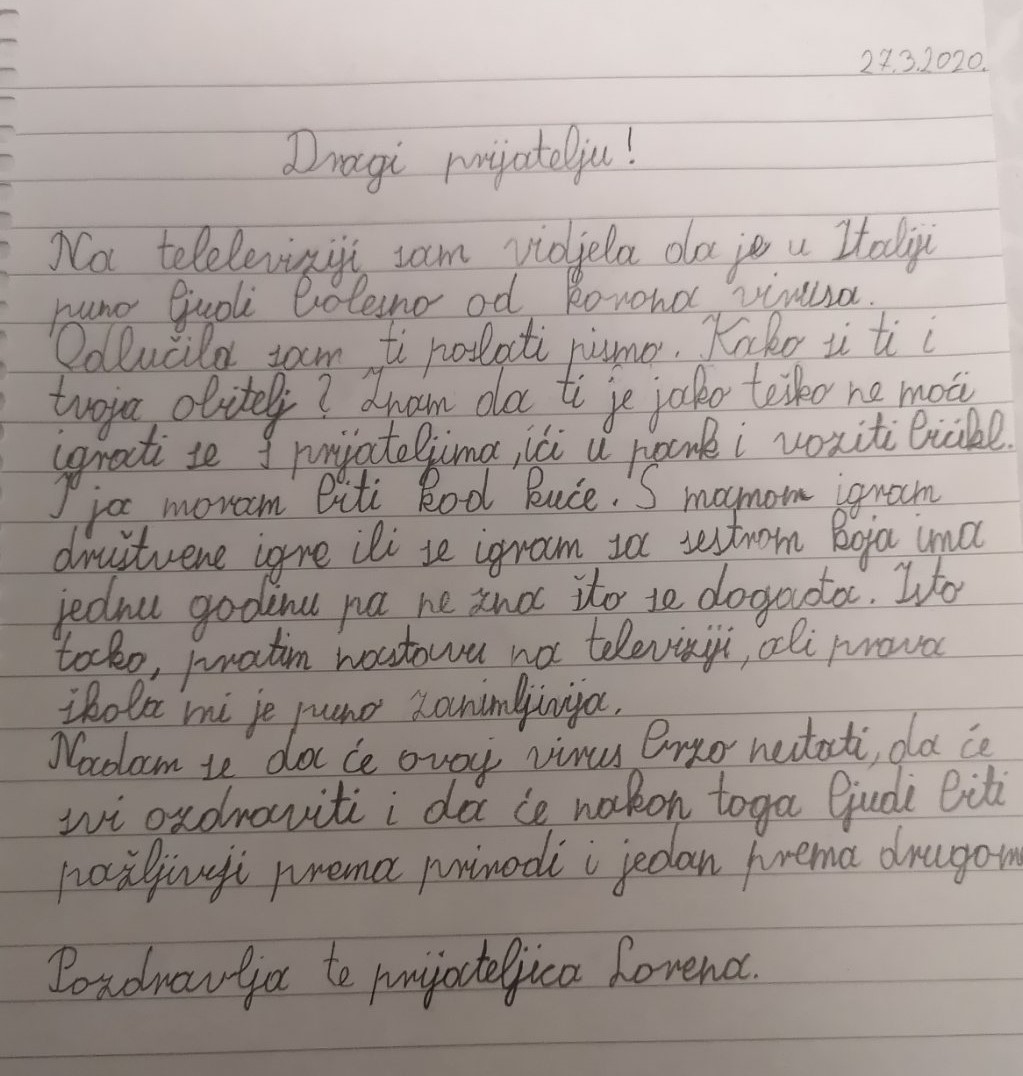 27.3.2020.
Dragi prijatelju!
Na teleleviziji sam vidjela da je u Italiji
puno ljudi bolesno od korona virusa.
Odlučila sam ti poslati pismo. Kako si ti i
tvoja obitelj? Znam da ti je jako teško ne moći
igrati se s prijateljima, ići u park i voziti bicikl.
I ja moram biti kod kuće. S mamom igram
društvene igre ili se igram sa sestrom koja ima
jednu godinu pa ne zna što se događa. Isto
tako, pratim nastavu na televiziji, ali prava
škola mi je puno zanimljivija.
Nadam se da će ovaj virus brzo nestati, da će
svi ozdraviti i da će nakon toga ljudi biti
pažljiviji prema prirodi i jedan prema drugom
Pozdravlja te prijateljica Lorena.